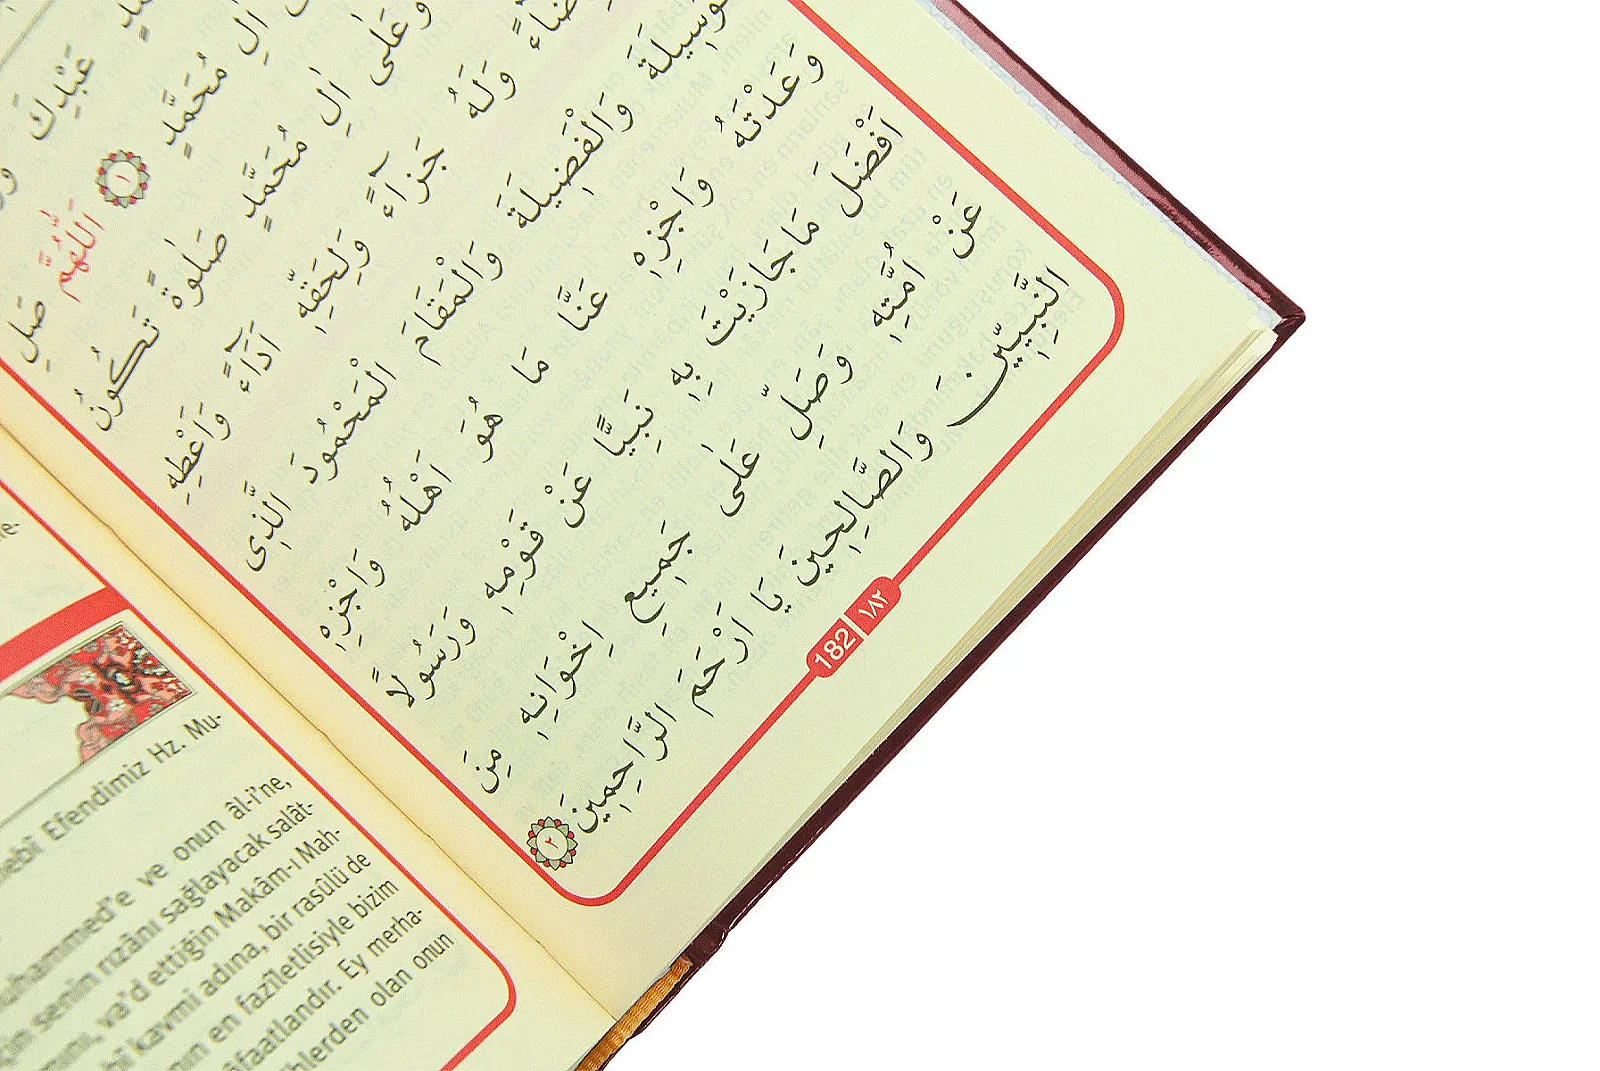 عَبْدِكَ
اٰلِ مُحَمَّدٍ ١ اَللّٰهُمَّ صَلِّ
وَعَلٰى اٰلِ مُحَمَّدٍ صَلٰوةً تَكُونُ
وَلَهُ جَزَٓاءً وَلِحَقِّهِ اَدَٓاءً وَاَعْطِهِ
الْوَسِيلَةَ وَالْفَضِيلَةَ وَالْمَقَامَ الْمَحْمُودَ الَّذِى
وَعَدْتَهُ وَاجْزِهِ عَنَّا مَا هُوَ اَهْلُهُ وَاجْزِهِ
اَفْضَلَ مَا جَازَيْتَ بِهِ نَبِيًّا عَنْ قَوْمِهِ وَرَسُولًا
عَنْ اُمَّتِهِ وَصَلِّ عَلٰى جَمِيعِ اِخْوَانِهِ مِنَ
النَّبِيِّينَ وَالصَّالِحِينَ يَا اَرْحَمَ الرَّاحِمِينَ ٢
182 ١٨٢
Efendimiz Hz. Mu-
ve onun âl-i'ne,
senin rızânı sağlayacak salât-
va'd ettiğin Makâm-ı Mah-
kavmi adına, bir rasûlü de
en fazîletlisiyle bizim
Ey merha-
olan onun